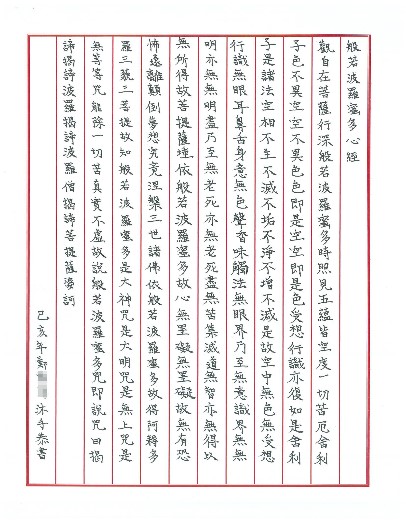 般若波羅蜜多心經
觀自在菩薩行深般若波羅蜜多時照見五蘊皆空度一切苦厄舍利
子色不異空空不異色色即是空空即是色受想行識亦復如是舍利
子是諸法空相不生不滅不垢不淨不增不減是故空中無色無受想
行識無眼耳鼻舌身意無色聲香味觸法無眼界乃至無意識界無無
明亦無無明盡乃至無老死亦無老死盡無苦集滅道無智亦無得以
無所得故菩提薩埵依般若波羅蜜多故心無罣礙無罣礙故無有恐
怖遠離顛倒夢想究竟涅槃三世諸佛依般若波羅蜜多故得阿耨多
羅三藐三菩提故知般若波羅蜜多是大神咒是大明咒是無上咒是
無等等咒能除一切苦真實不虛故說般若波羅蜜多咒即說咒曰揭
諦揭諦波羅揭諦波羅僧揭諦菩提薩婆訶
己亥年 沐手恭書